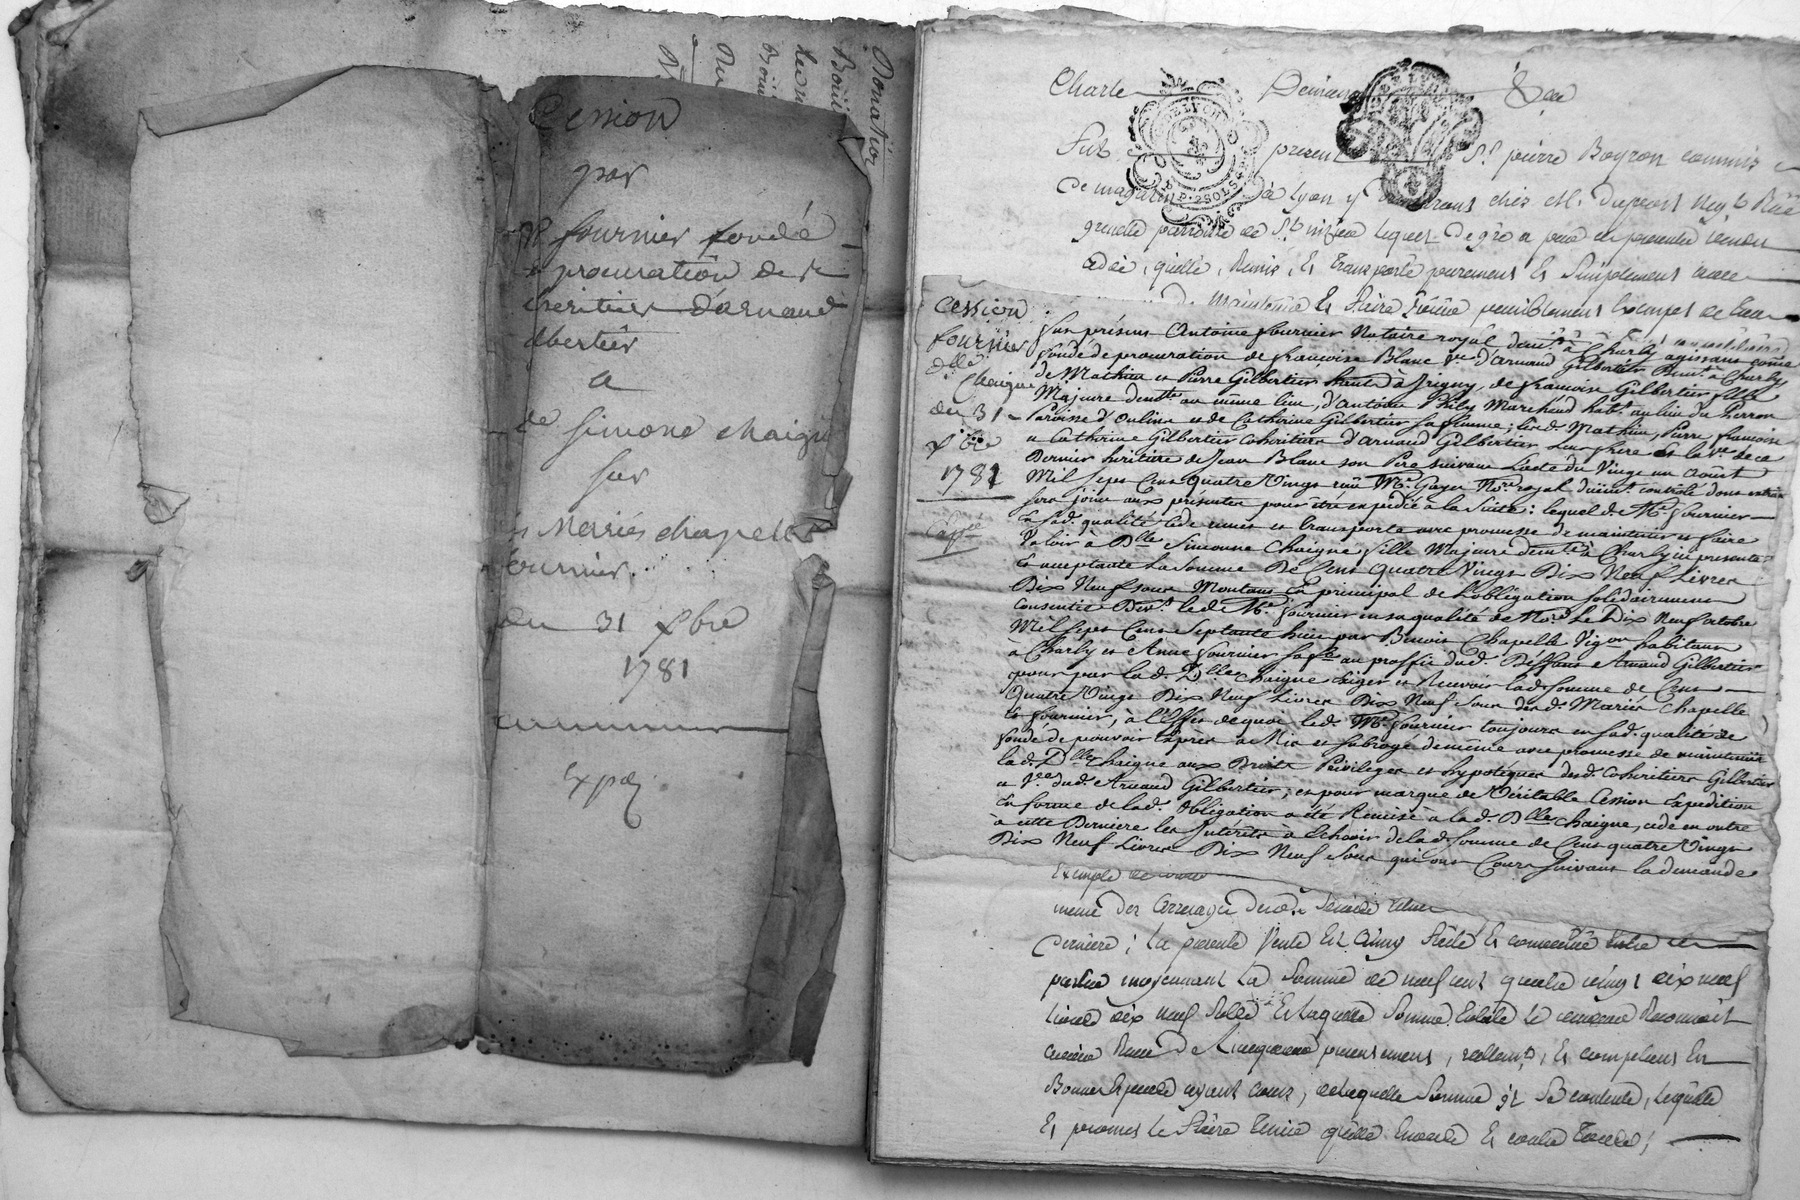 Donation
Cession
par
Mr fournier fondé
procuration de
heritiers D'arnaud
Gilbertier
a
Dlle Simone chaigne
sur
les Mariés chapelle
fournier.
du 31 xbre
1781
Expée
Charle Demaison &ce
Fut present Sr. pierre Boyron commis
de magazin à Lyon y demeurant chés M. Dupont neg.t Rue
grenette parroisse de St. nizier lequel de gré a par ces presentes vendu
cedé, quitté, Remis, Et transporté purement Et Simplement avec
de maintenir Et faire jouir paisiblement Exempt de tous
Cession
fournier
dlle
Chaigne
du 31
xbre
1781
Fut présent Antoine fournier Notaire royal demt. à Charly agissant comme
fondé de procuration de françoise Blanc ve. d'arnaud Gilbertier demt. à Charly
de Mathieu et Pierre Gilbertier à Irigny, de françoise Gilbertier fille
Majeure demte. au même lieu, d'Antoine Phily Marchand habt. au lieu du Perron
Paroisse d'Oulins et de Catherine Gilbertier sa femme; lesd. Mathieu, Pierre françoise
et Catherine Gilbertier Coheritiers d'arnaud Gilbertier leur frere et la ve. de ce
Dernier heritiere de Jean Blanc son Pere suivant l'acte du Vingt un aoust
Mil Sept Cent quatre Vingt reçu Me. Gayet Nore. royal duüent. controlé dont extrait
sera joint aux présentes pour être expédié à la Suite: lequel d. Me. fournier
En sad. qualité cede remet et transporte avec promesse de maintenir et faire
Valoir à Dlle Simonne Chaigne fille Majeure demte. à Charly ici presente
Et acceptante la Somme De Cent Quatre Vingt Dix Neuf Livres
Dix Neuf sous Montant En principal de l'obligation solidairement
Consentie Devt. led. Me. fournier en sa qualité de Nore. Le Dix Neuf octobre
Mil Sept Cent Septante huit par Benoit Chapelle Vigon habitant
à Charly et Anne fournier sa fe. au proffit dud. Arnaud Gilbertier
pour par lad. Dlle Chaigne Exiger et Recevoir lad. somme de Cent
Quatre Vingt Dix Neuf Livres Dix Neuf Sous desd. Mariés Chapelle
Et fournier, à l'effet de quoi led. Me. fournier toujours en sad. qualité de
fondé de pouvoir Exprès a Mis et subrogé de même avec promesse de maintenir
lad. Dlle Chaigne aux Droits Privileges et hypotéques desd. Coheritiers Gilbertier
et ve. dud. Arnaud Gilbertier; et pour marque de Véritable Cession Expedition
En forme de lad. Obligation a été Remise à lad. Dlle Chaigne, cede en outre
à cette Derniere les Intérêts à Echoir de lad. Somme de Cent quatre Vingt
Dix Neuf Livres Dix Neuf Sous qui ont Cours Suivant la demande
Exemple de
meme des arrerages
derniere; La presente Vente Est ainsy faite Et convenüe Entre les
parties moyennant La Somme de neuf cent quatre vingt dix neuf
Livres dix neuf Sols Et laquelle Somme totale Le vendeur Reconnoit
avoir Reçu De L'acquereur presentement, réellemt. Et comptant En
Bonnes Especes ayant cours, de laquelle Somme il Se contente, L'aquitte
Et promet le faire tenir quitte Envers Et contre toutes;